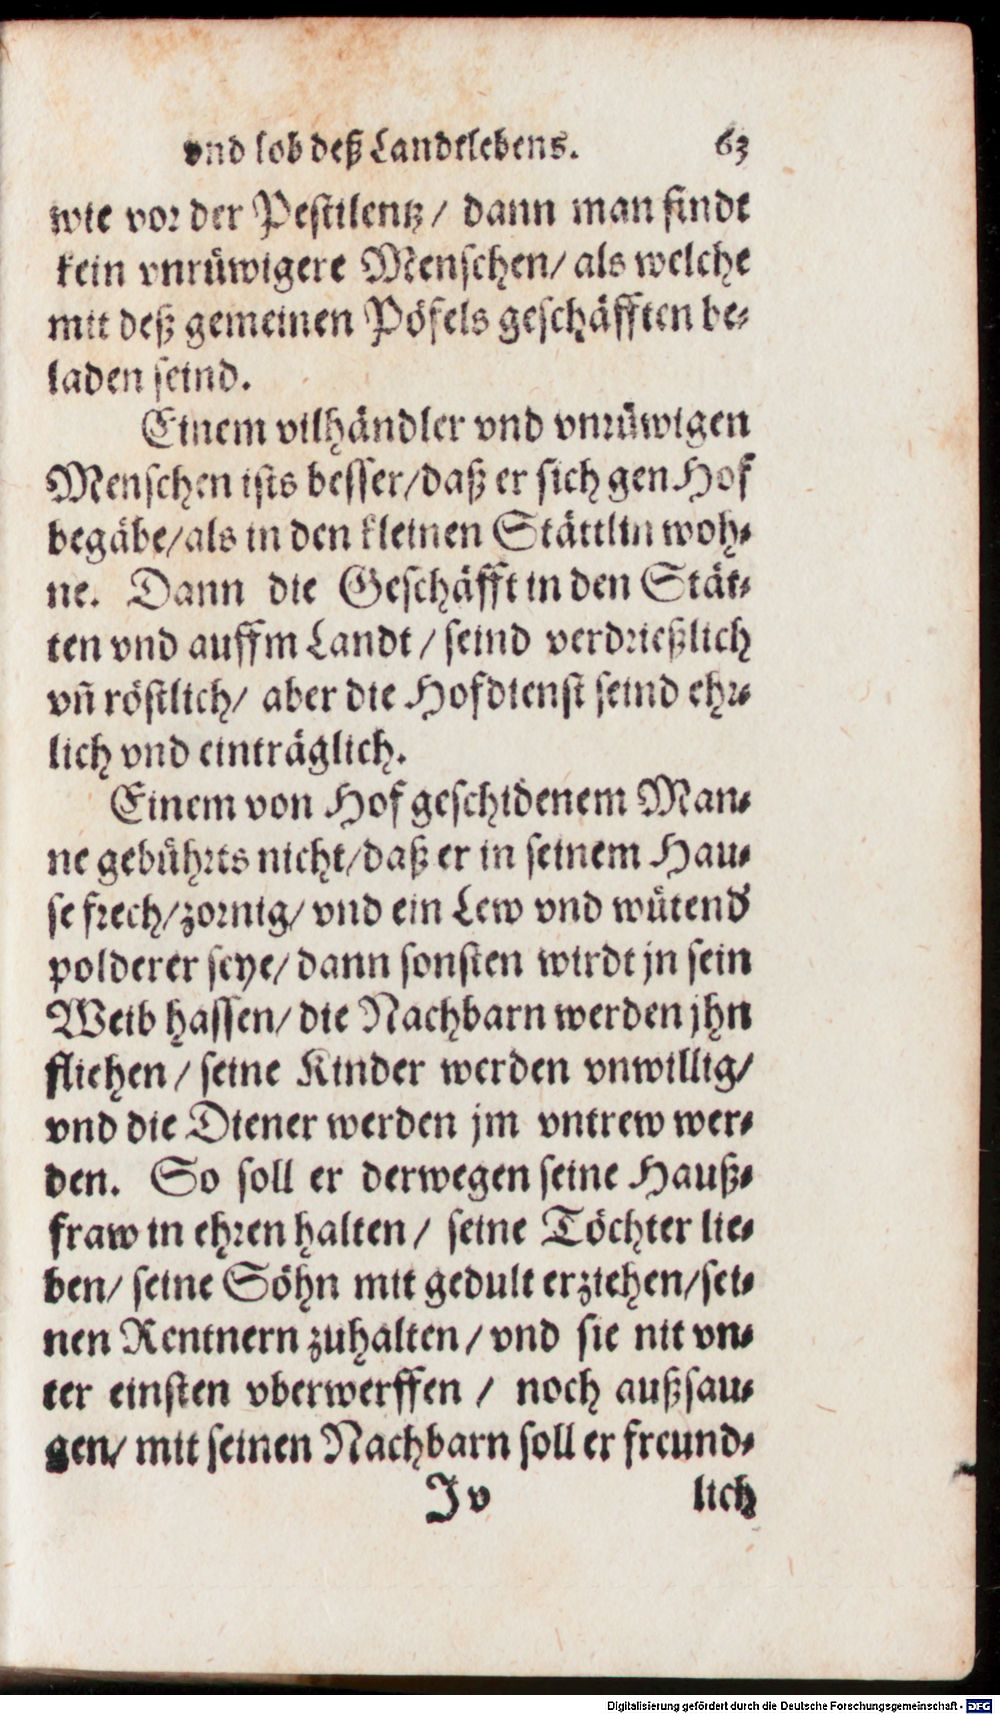 vnd lob deß Landtlebens. 63
wie vor der Pestilentz/ dann man findt
kein vnrüwigere Menschen/ als welche
mit deß gemeinen Pöfels geschäfften be-
laden seind.
Einem vilhändler vnd vnrüwigen
Menschen ists besser/daß er sich gen Hof
begäbe/als in den kleinen Stättlin woh-
ne. Dann die Geschäfft in den Stät-
ten vnd auffm Landt / seind verdrießlich
vñ röstlich/ aber die Hofdienst seind ehr-
lich vnd einträglich.
Einem von Hof geschidenem Man-
ne gebührts nicht/daß er in seinem Hau-
se frech/zornig/ vnd ein Lew vnd wütend
polderer seye/ dann sonsten wirdt jn sein
Weib hassen/ die Nachbarn werden jhn
fliehen / seine Kinder werden vnwillig/
vnd die Diener werden jm vntrew wer-
den. So soll er derwegen seine Hauß-
fraw in ehren halten / seine Töchter lie-
ben/ seine Söhn mit gedult erziehen/sei-
nen Rentnern zuhalten / vnd sie nit vn-
ter einsten vberwerffen / noch außsau-
gen/ mit seinen Nachbarn soll er freund-
J v lich
Digitalisierung gefördert durch die Deutsche Forschungsgemeinschaft - DFG